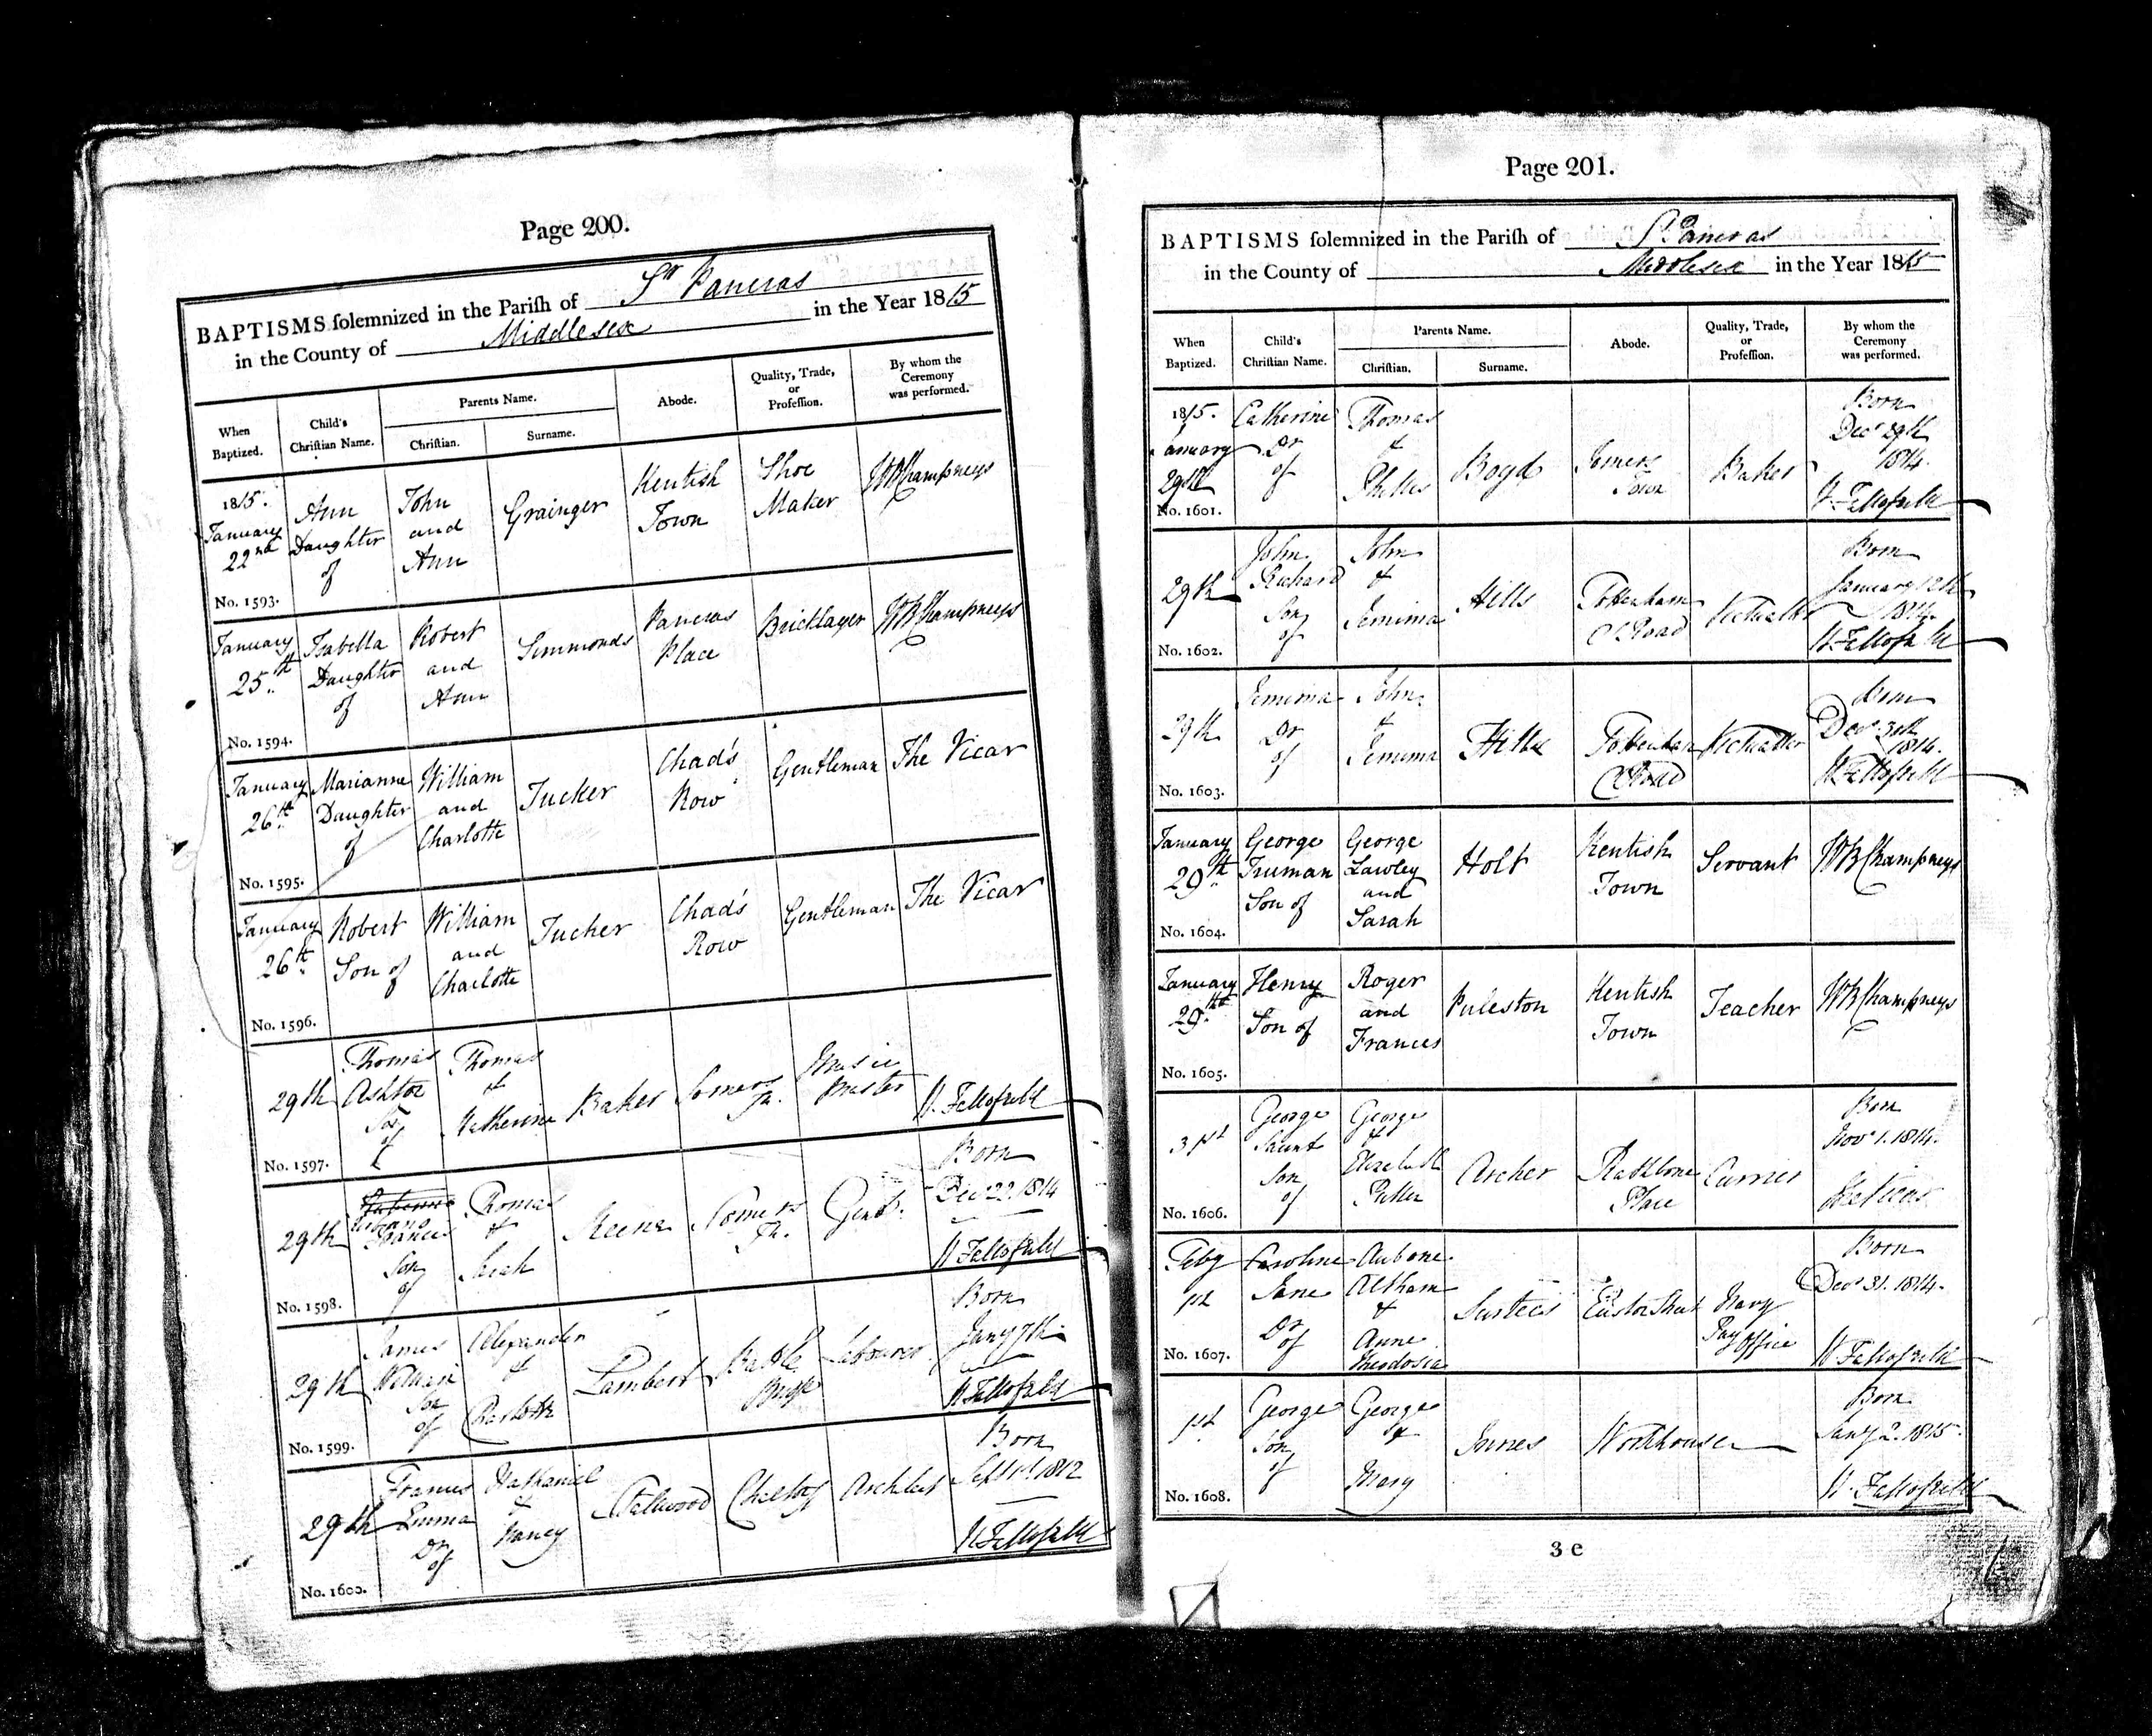 Page 200.
BAPTISMS solemnized in the Parish of St Pancras
in the County of Middlesex in the Year 1815
When Baptized.
Child's Christian Name.
Parents Name.
Christian.
Surname.
Abode.
Quality, Trade, or Profession.
By whom the Ceremony was performed.
1815.
January 22nd
No. 1593.
Ann Daughter of
John and Ann
Grainger
Kentish Town
Shoe Maker
WB Champneys
January 25th
No. 1594.
Isabella Daughter of
Robert and Ann
Simmonds
Pancras Place
Bricklayer
WB Champneys
January 26th
No. 1595.
Marianne Daughter of
William and Charlotte
Tucker
Chad's Row
Gentleman
The Vicar
January 26th
No. 1596.
Robert Son of
William and Charlotte
Tucker
Chad's Row
Gentleman
The Vicar
29th
No. 1597.
Thomas
Son of
Thomas & Katherine
Baker
Somers Tn.
Music Master
29th
No. 1598.
Francis
Son of
Thomas & Sarah
Keene
Somers Tn.
Gent.
Born
Decr 22. 1814
29th
No. 1599.
James William
Son of
Alexander & Charlotte
Lambert
Battle Bridge
Labourer
Born
Jany 7th
29th
No. 1600.
Frances Emma
Dr of
Nathaniel & Nancy
Chelsea
Architect
Born
1812
Page 201.
BAPTISMS solemnized in the Parish of St Pancras
in the County of Middlesex in the Year 1815
When Baptized.
Child's Christian Name.
Parents Name.
Christian.
Surname.
Abode.
Quality, Trade, or Profession.
By whom the Ceremony was performed.
1815.
January 29th
No. 1601.
Catherine Dr of
Thomas &
Boyd
Somers Town
Baker
Born
Decr 29th 1814.
29th
No. 1602.
John Richard Son of
John & Jemima
Hills
Tottenham Ct Road
Victualler
Born
January 12th 1814.
29th
No. 1603.
Jemima Dr of
John & Jemima
Hills
Tottenham Ct Road
Victualler
Born
1814.
January 29th
No. 1604.
George Truman Son of
George Lawley and Sarah
Holt
Kentish Town
Servant
WB Champneys
January 29th
No. 1605.
Henry Son of
Roger and Frances
Puleston
Kentish Town
Teacher
WB Champneys
31st
No. 1606.
George
Son of
George & Elizabeth
Archer
Rathbone Place
Currier
Born
Novr 1. 1814.
Feby 1st
No. 1607.
Caroline Jane Dr of
Aubone Altham & Anne Theodosia
Surtees
Euston Street
Navy Pay Office
Born
Decr 31. 1814.
1st
No. 1608.
George Son of
George & Mary
Innes
Workhouse
Born
Jany 2. 1815.
3 e